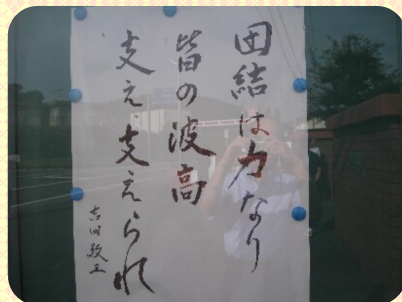 団結は力なり
皆の波高
支え支えられ
吉田